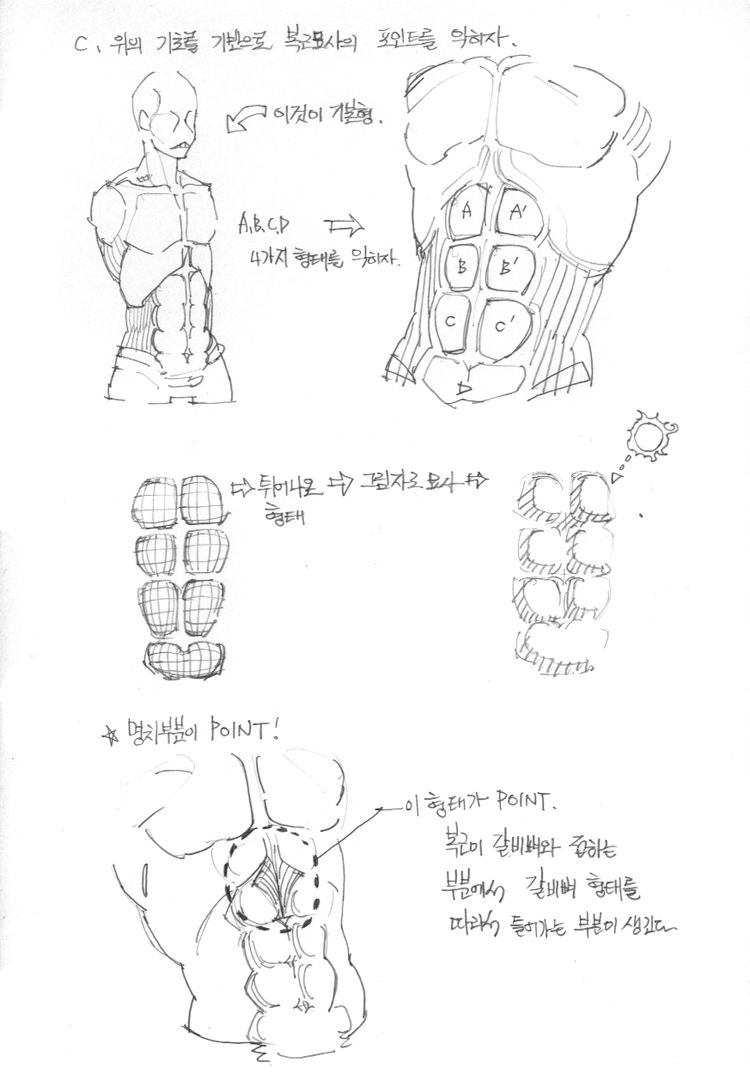 C. 위의 기초를 기반으로 복근묘사의 포인트를 익히자.
이것이 기본형.
A,B,C,D
4가지 형태를 익히자.
A A'
B B'
C C'
D
튀어나온
형태
그림자로 묘사
☆ 명치부분이 POINT!
이 형태가 POINT.
복근이 갈비뼈와 접하는
부분에서 갈비뼈 형태를
따라서 들어가는 부분이 생긴다.